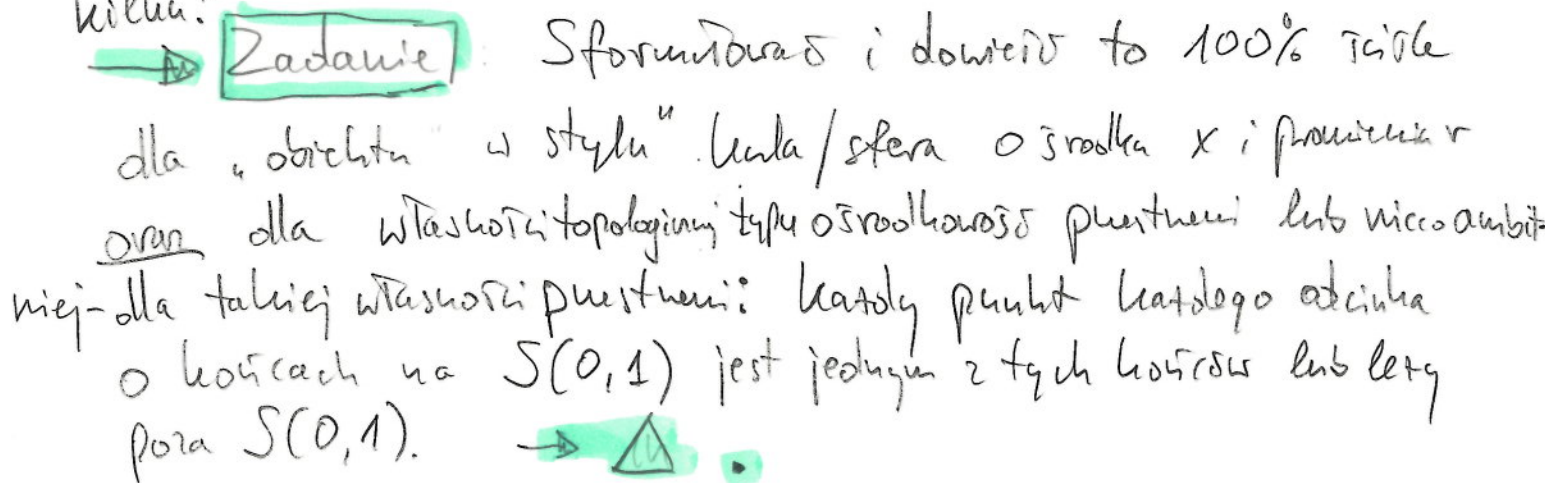 kilku.
Zadanie Sformułować i dowieść to 100% ściśle
dla „obiektu w stylu" kula/sfera o środku x i promieniu r
oraz dla własności topologicznej typu ośrodkowość przestrzeni lub nieco ambit-
niej - dla takiej własności przestrzeni: każdy punkt każdego odcinka
o końcach na S(0,1) jest jednym z tych końców lub leży
poza S(0,1).